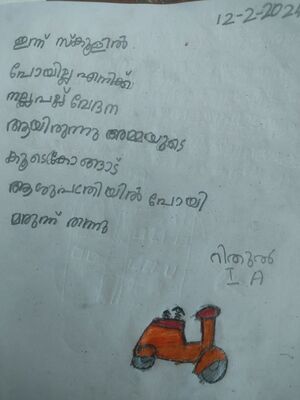 12-2-2024
ഇന്ന് സ്കൂളിൽ
പോയില്ല എനിക്ക്
നല്ല പല്ല് വേദന
ആയിരുന്നു അമ്മയുടെ
കൂടെ കോങ്ങാട്
ആശുപത്രിയിൽ പോയി
മരുന്ന് തന്നു
റിതുൽ
I A